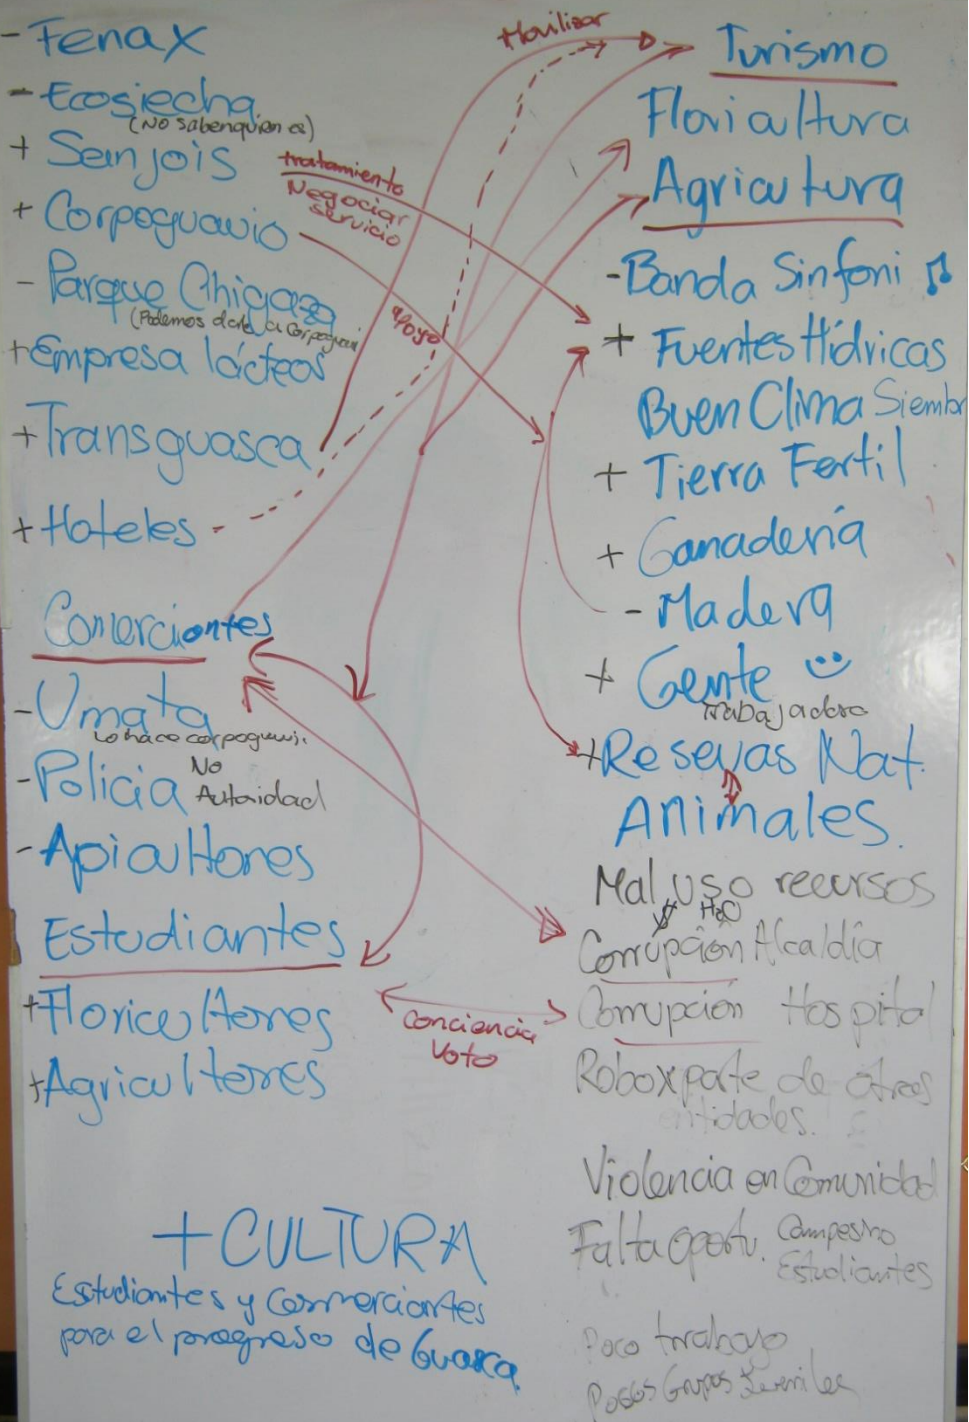 - Fenax
- Ecosiecha
(No saben quien es)
+ Sanjois
+ Corpoguavio
- Parque Chigaza
(Podemos darle a Corpoguavi
+ Empresa lácteos
+ Transguasca
+ Hoteles
Comerciantes
- Umata
Lo hace corpoguavi.
- Policia No
Autoridad
- Apicultores
Estudiantes
+ Floricultores
+ Agricultores
+ CULTURA
Estudiantes y Comerciantes
para el progreso de Guasca
Movilizar
tratamiento
Negociar
servicio
apoyo
Conciencia
Voto
Turismo
Floricultura
Agricultura
- Banda Sinfoni
+ Fuentes Hídricas
Buen Clima Siembr
+ Tierra Fertil
+ Ganadería
- Madera
+ Gente
Trabajadora
+ Resevas Nat.
Animales.
Mal uso recursos
$ H2O
Corrupción Alcaldía
Corrupción Hospital
Robo x parte de otras
entidades.
Violencia en Comunidad
Falta oportu. Campesino
Estudiantes
Poco trabajo
Pocos Grupos Juveniles